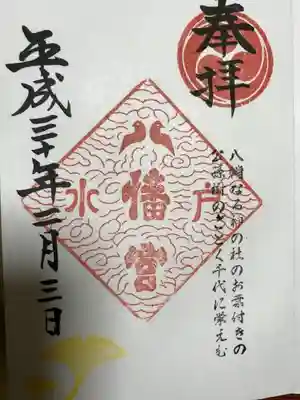 奉拝
八幡なる神の社のお葉付きの
公孫樹のごとく千代に栄えむ
水戸
八幡宮
平成三十年三月三日